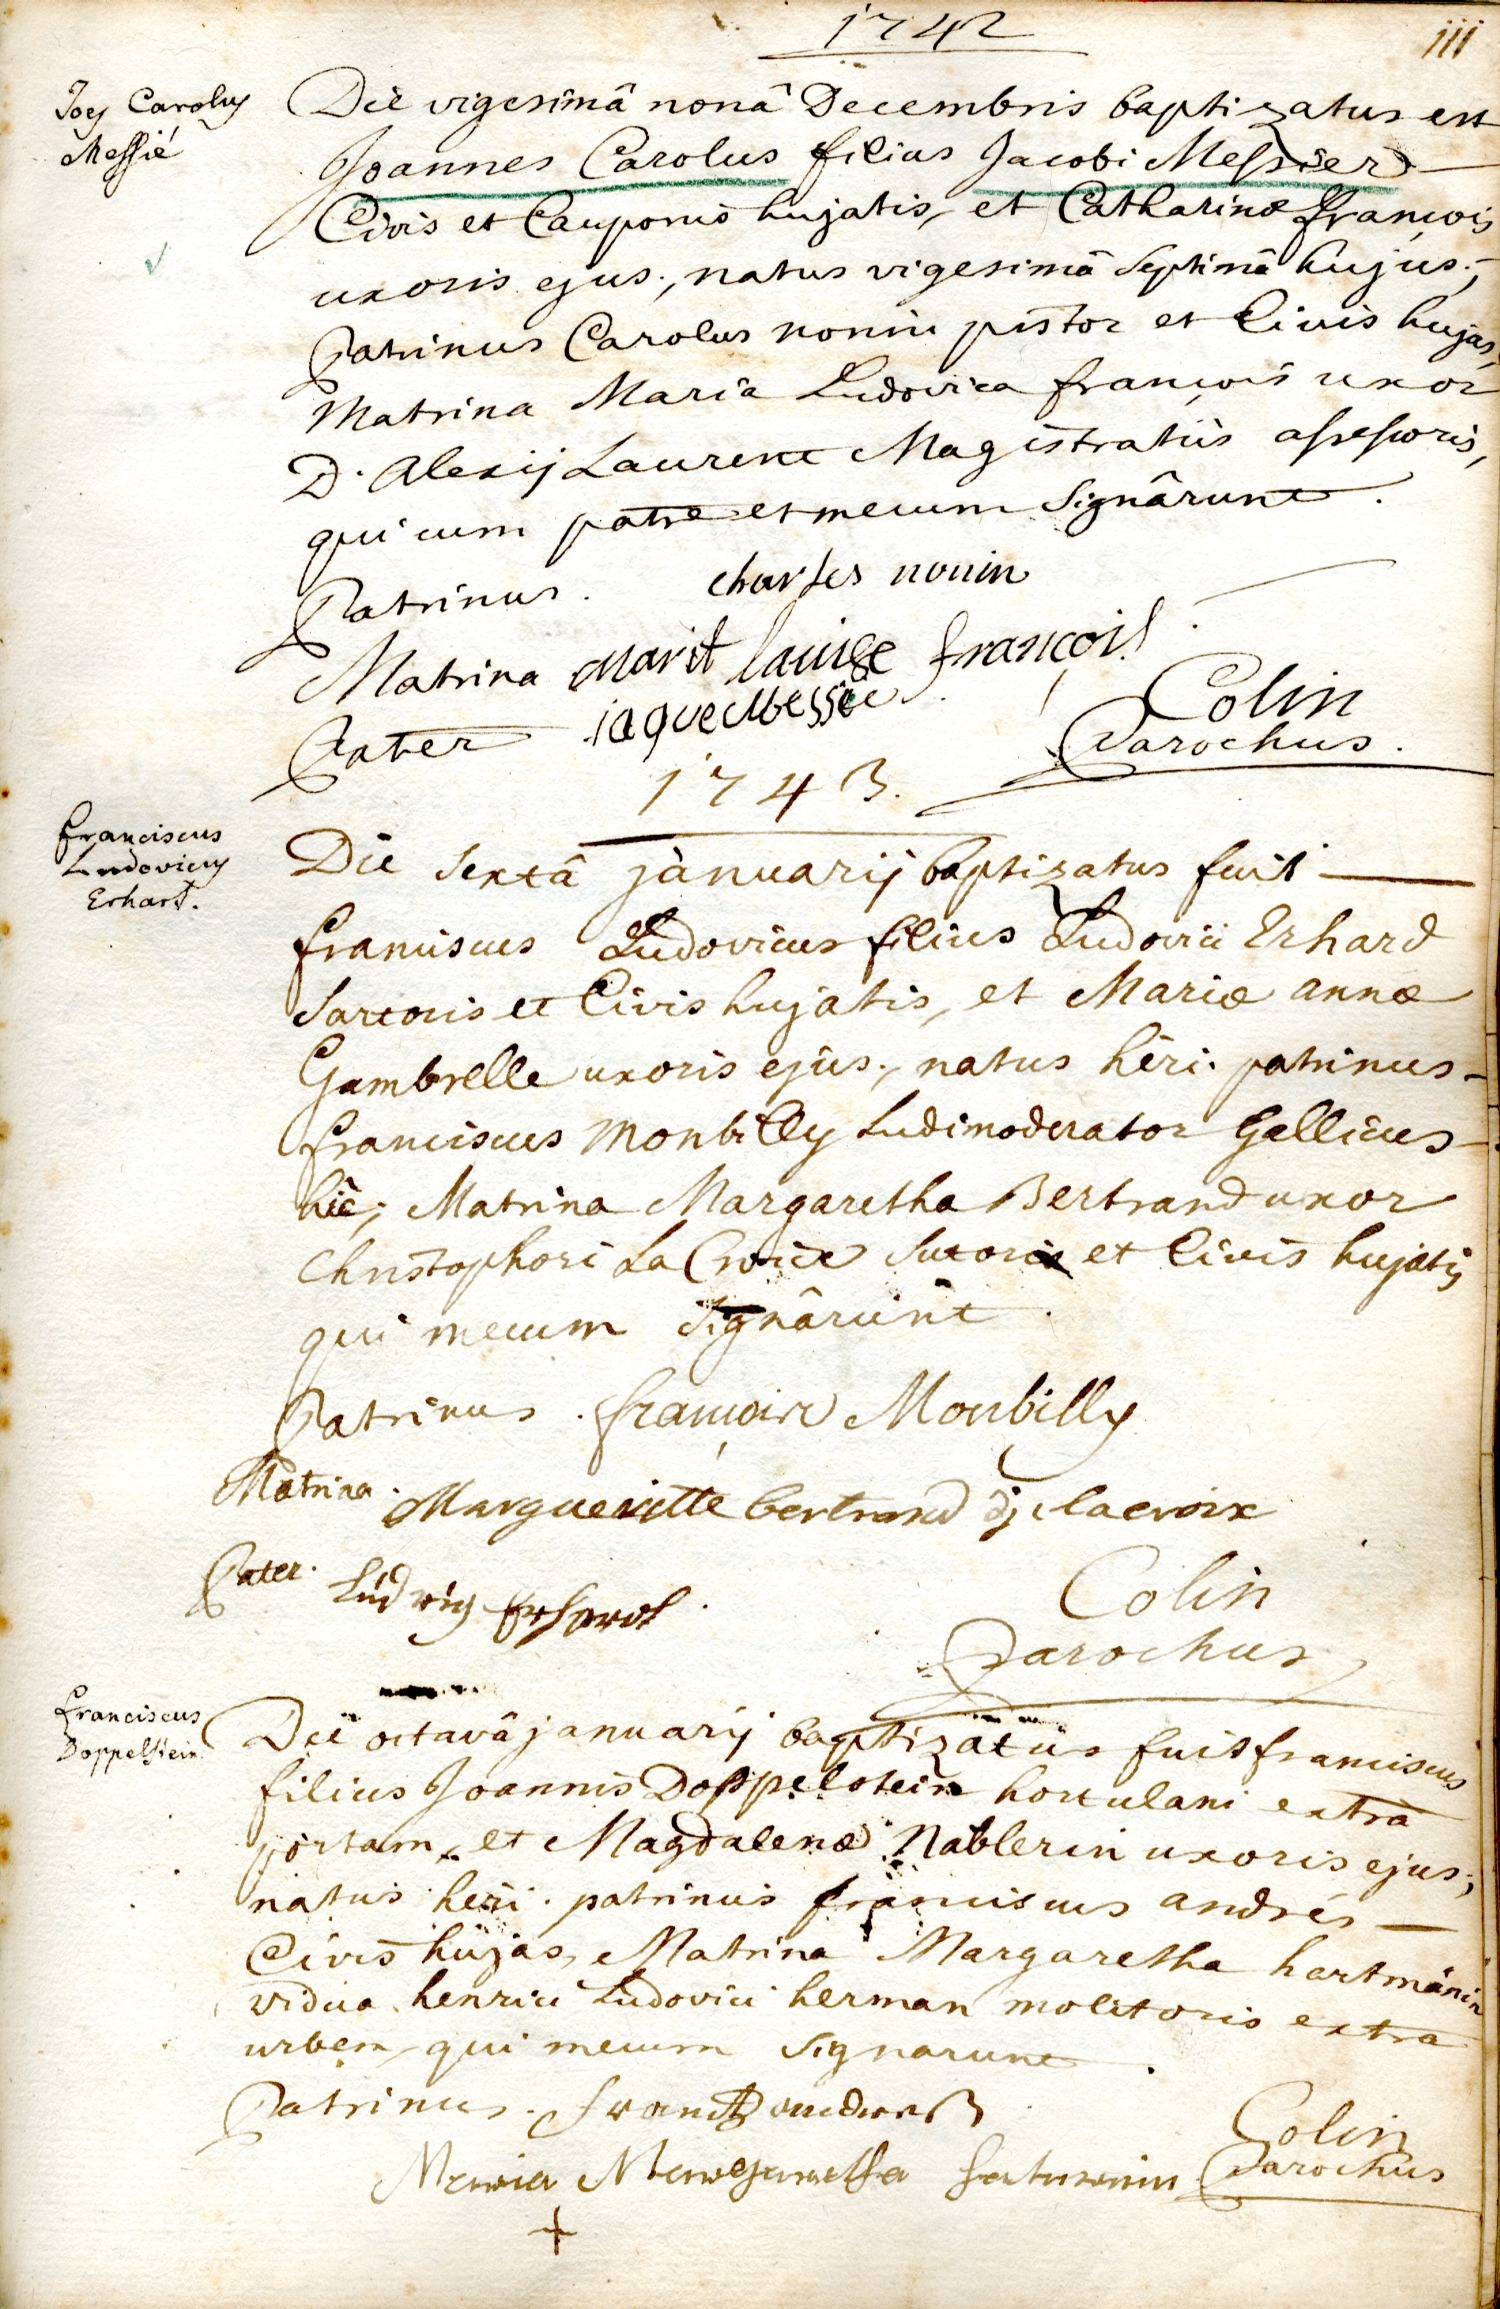 1742
iii
Joes Carolus
Messié
Die vigesimâ nonâ Decembris baptizatus est
Joannes Carolus filius Jacobi Messier
Civis et Cauponis hujatis, et Catharinæ François
uxoris ejus; natus vigesimâ septimâ hujus;
Patrinus Carolus nonin pistor et Civis hujas,
Matrina Maria Ludovica françois uxor
D. Alexij Laurent Magistratûs assessoris,
qui cum patre et mecum signârunt.
Patrinus. charles nonin
Matrina Marit louise françois
Pater iaque Messié
Colin
Parochus.
1743.
franciscus
Ludovicus
Erhart.
Die sextâ januarij baptizatus fuit
franciscus Ludovicus filius Ludovici Erhard
Sartoris et Civis hujatis, et Mariæ annæ
Gambrelle uxoris ejus; natus heri. patrinus
franciscus Monbilly Ludimoderator Gallicus
hic; Matrina Margaretha Bertrand uxor
Christophori La Croix Sutoris et Civis hujatis
qui mecum signârunt.
Patrinus. françois Monbilly
Matrina. Margueritte bertrand dj lacroix
Pater. Ludwig Erhard.
Colin
Parochus
franciscus
Doppelstein.
Die octavâ januarij baptizatus fuit franciscus
filius Joannis Doppelstein hortulani extra
portam, et Magdalenæ Nablerin uxoris ejus;
natus heri. patrinus franciscus andrés
Civis hujas, Matrina Margaretha hartmänin
vidua henrici Ludovici herman molitoris extra
urbem, qui mecum signarunt.
Patrinus. frantz andreß
Colin
Maria Margaretha
Parochus
+